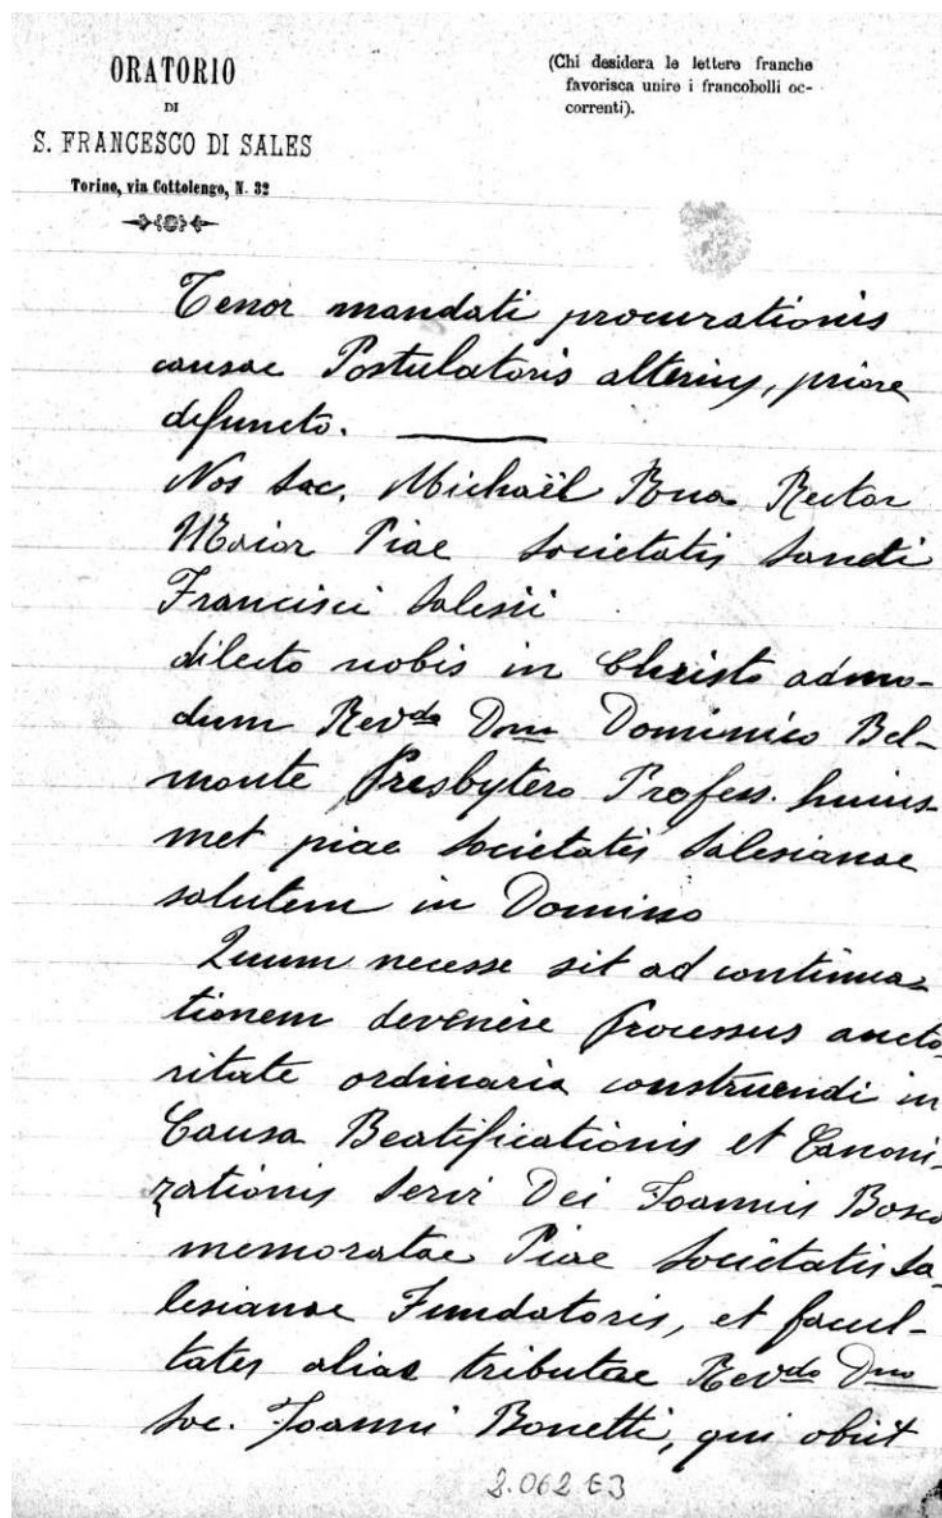 ORATORIO
DI
S. FRANCESCO DI SALES
Torino, via Cottolengo, N. 32
(Chi desidera le lettere franche
favorisca unire i francobolli oc-
correnti).
Tenor mandati procurationis
causae Postulatoris alterius, priore
defuncto.
Nos Sac. Michaël Rua Rector
Maior Piae Societatis Sancti
Francisci Salesii
dilecto nobis in Christo admo-
dum Revdo Dno Dominico Bel-
monte Presbytero Profess. huius-
met piae Societatis Salesianae
salutem in Domino
Quum necesse sit ad continua-
tionem devenire processus aucto-
ritate ordinaria construendi in
Causa Beatificationis et Canoni-
zationis Servi Dei Joannis Bosco
memoratae Piae Societatis Sa-
lesianae Fundatoris, et facul-
tates alias tributae Revdo Dno
Sac. Joanni Bonetti, qui obiit
2.062 E3